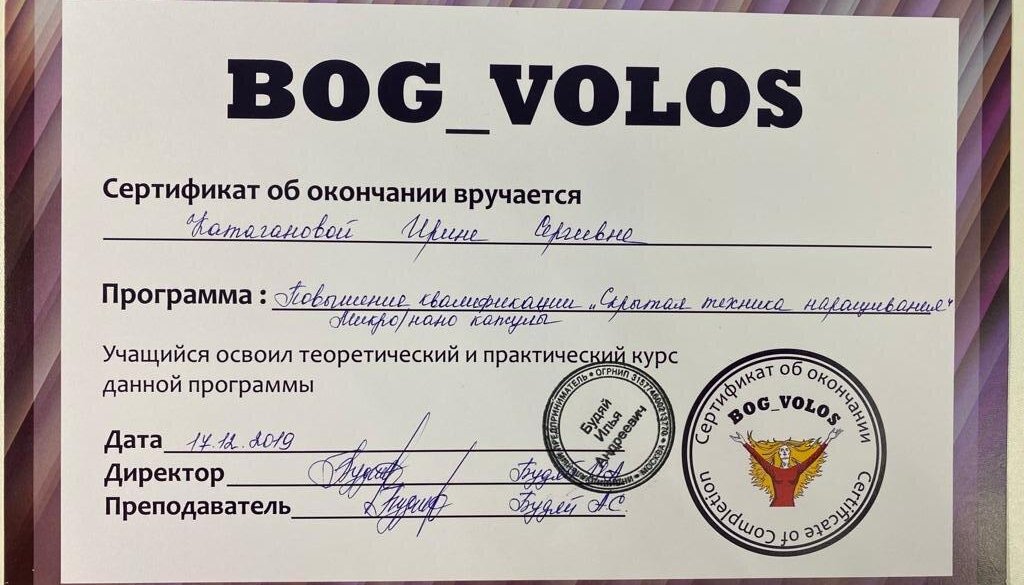 BOG_VOLOS
Сертификат об окончании вручается
Катагановой Ирине Сергеевне
Программа : Повышение квалификации „Скрытая техника наращивания"
Микро/нано капсулы
Учащийся освоил теоретический и практический курс
данной программы
Дата 17.12.2019
Директор Будяй И.А.
Преподаватель Будяй А.С.
ИНДИВИДУАЛЬНЫЙ ПРЕДПРИНИМАТЕЛЬ • ОГРНИП • МОСКВА
Будяй
Илья
Андреевич
Сертификат об окончании
BOG_VOLOS
Certificate of Completion